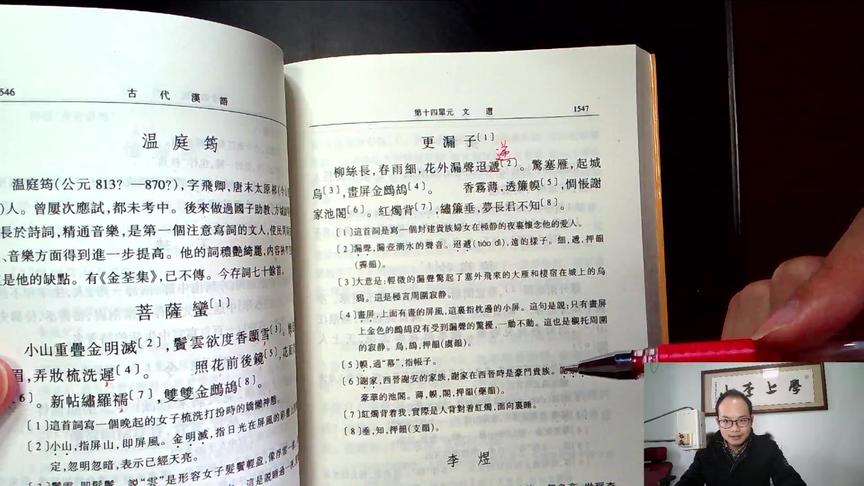 546
古代漢語
温庭筠
温庭筠(公元813?—870?),字飛卿,唐末太原祁
人。曾屢次應試,都未考中。後來做過國子助教、方城
長於詩詞,精通音樂,是第一個注意寫詞的文人,使
、音樂方面得到進一步提高。他的詞穠艷綺麗,内容
是他的缺點。有《金荃集》,已不傳。今存詞七十餘首。
菩薩蠻[1]
小山重疊金明滅[2],鬢雲欲度香顋雪[3]。
眉,弄妝梳洗遲[4]。 照花前後鏡[5],花
6]。新帖繡羅襦[7],雙雙金鷓鴣[8]。
[1]這首詞寫一個晚起的女子梳洗打扮時的嬌慵神態。
[2]小山,指屏山,即屏風。金明滅,指日光在屏風的彩畫上
定,忽明忽暗,表示已經天亮。
第十四單元 文選
1547
更漏子[1]
遞
柳絲長,春雨細,花外漏聲迢遞[2]。驚塞雁,起城
烏[3],畫屏金鷓鴣[4]。 香霧薄,透簾幙[5],惆悵謝
家池閣[6]。紅燭背[7],繡簾垂,夢長君不知[8]。
[1]這首詞是寫一個封建貴族婦女在極靜的夜裏懷念他的愛人。
[2]漏聲,漏壺滴水的聲音。迢遞(tiáo dì),遠的樣子。細,遞,押韻
(霽韻)。
[3]大意是:輕微的漏聲驚起了塞外飛來的大雁和棲宿在城上的烏
鴉。這是極言周圍寂静。
[4]畫屏,上面有畫的屏風,這裏指枕邊的小屏。這句是説:只有畫屏
上金色的鷓鴣没有受到漏聲的驚擾,一動不動。這也是襯托周圍
的寂静。烏,鴣,押韻(虞韻)。
[5]幙,通“幕”,指帳子。
[6]謝家,西晉謝安的家族,謝家在西晉時是豪門貴族。
豪華的池閣。薄,幙,閣,押韻(藥韻)。
[7]紅燭背着我,實際是人背對着紅燭,面向裏睡。
[8]垂,知,押韻(支韻)。
李煜
學上至